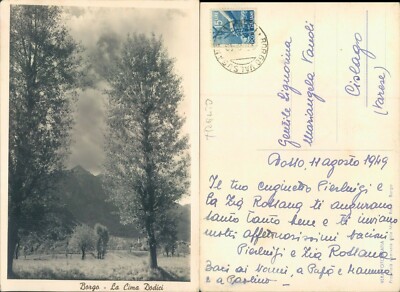 Borgo - La Cima Dodici
Gentile Signorina
Mariangela Vanoli
Cislago
(Varese)
11 agosto 1949
Il tuo cuginetto Pierluigi e
la Zia Rossana ti augurano
tanto tanto bene e ti inviano
molti affettuosissimi bacioni
Pierluigi e Zia Rossana
Baci ai Nonni, a Papà e Mamma
e a Paolino